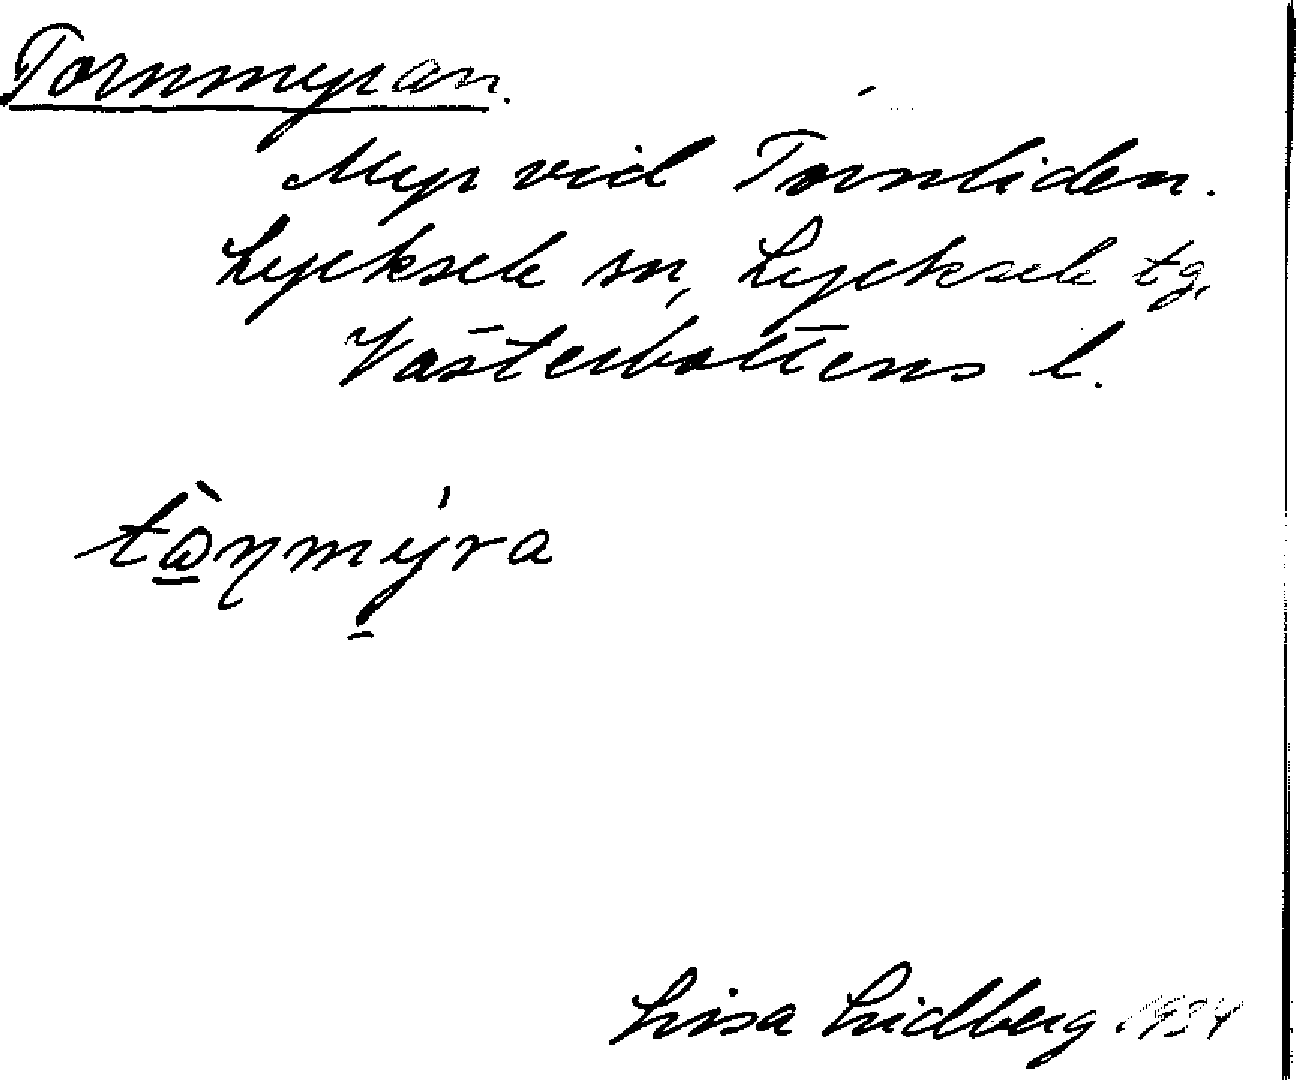 Tornmyran.
Myr vid Tornliden.
Lycksele sn, Lycksele tg,
Västerbottens l.
tὼ̱ɳmý̱ra
Lisa Lidberg 1934